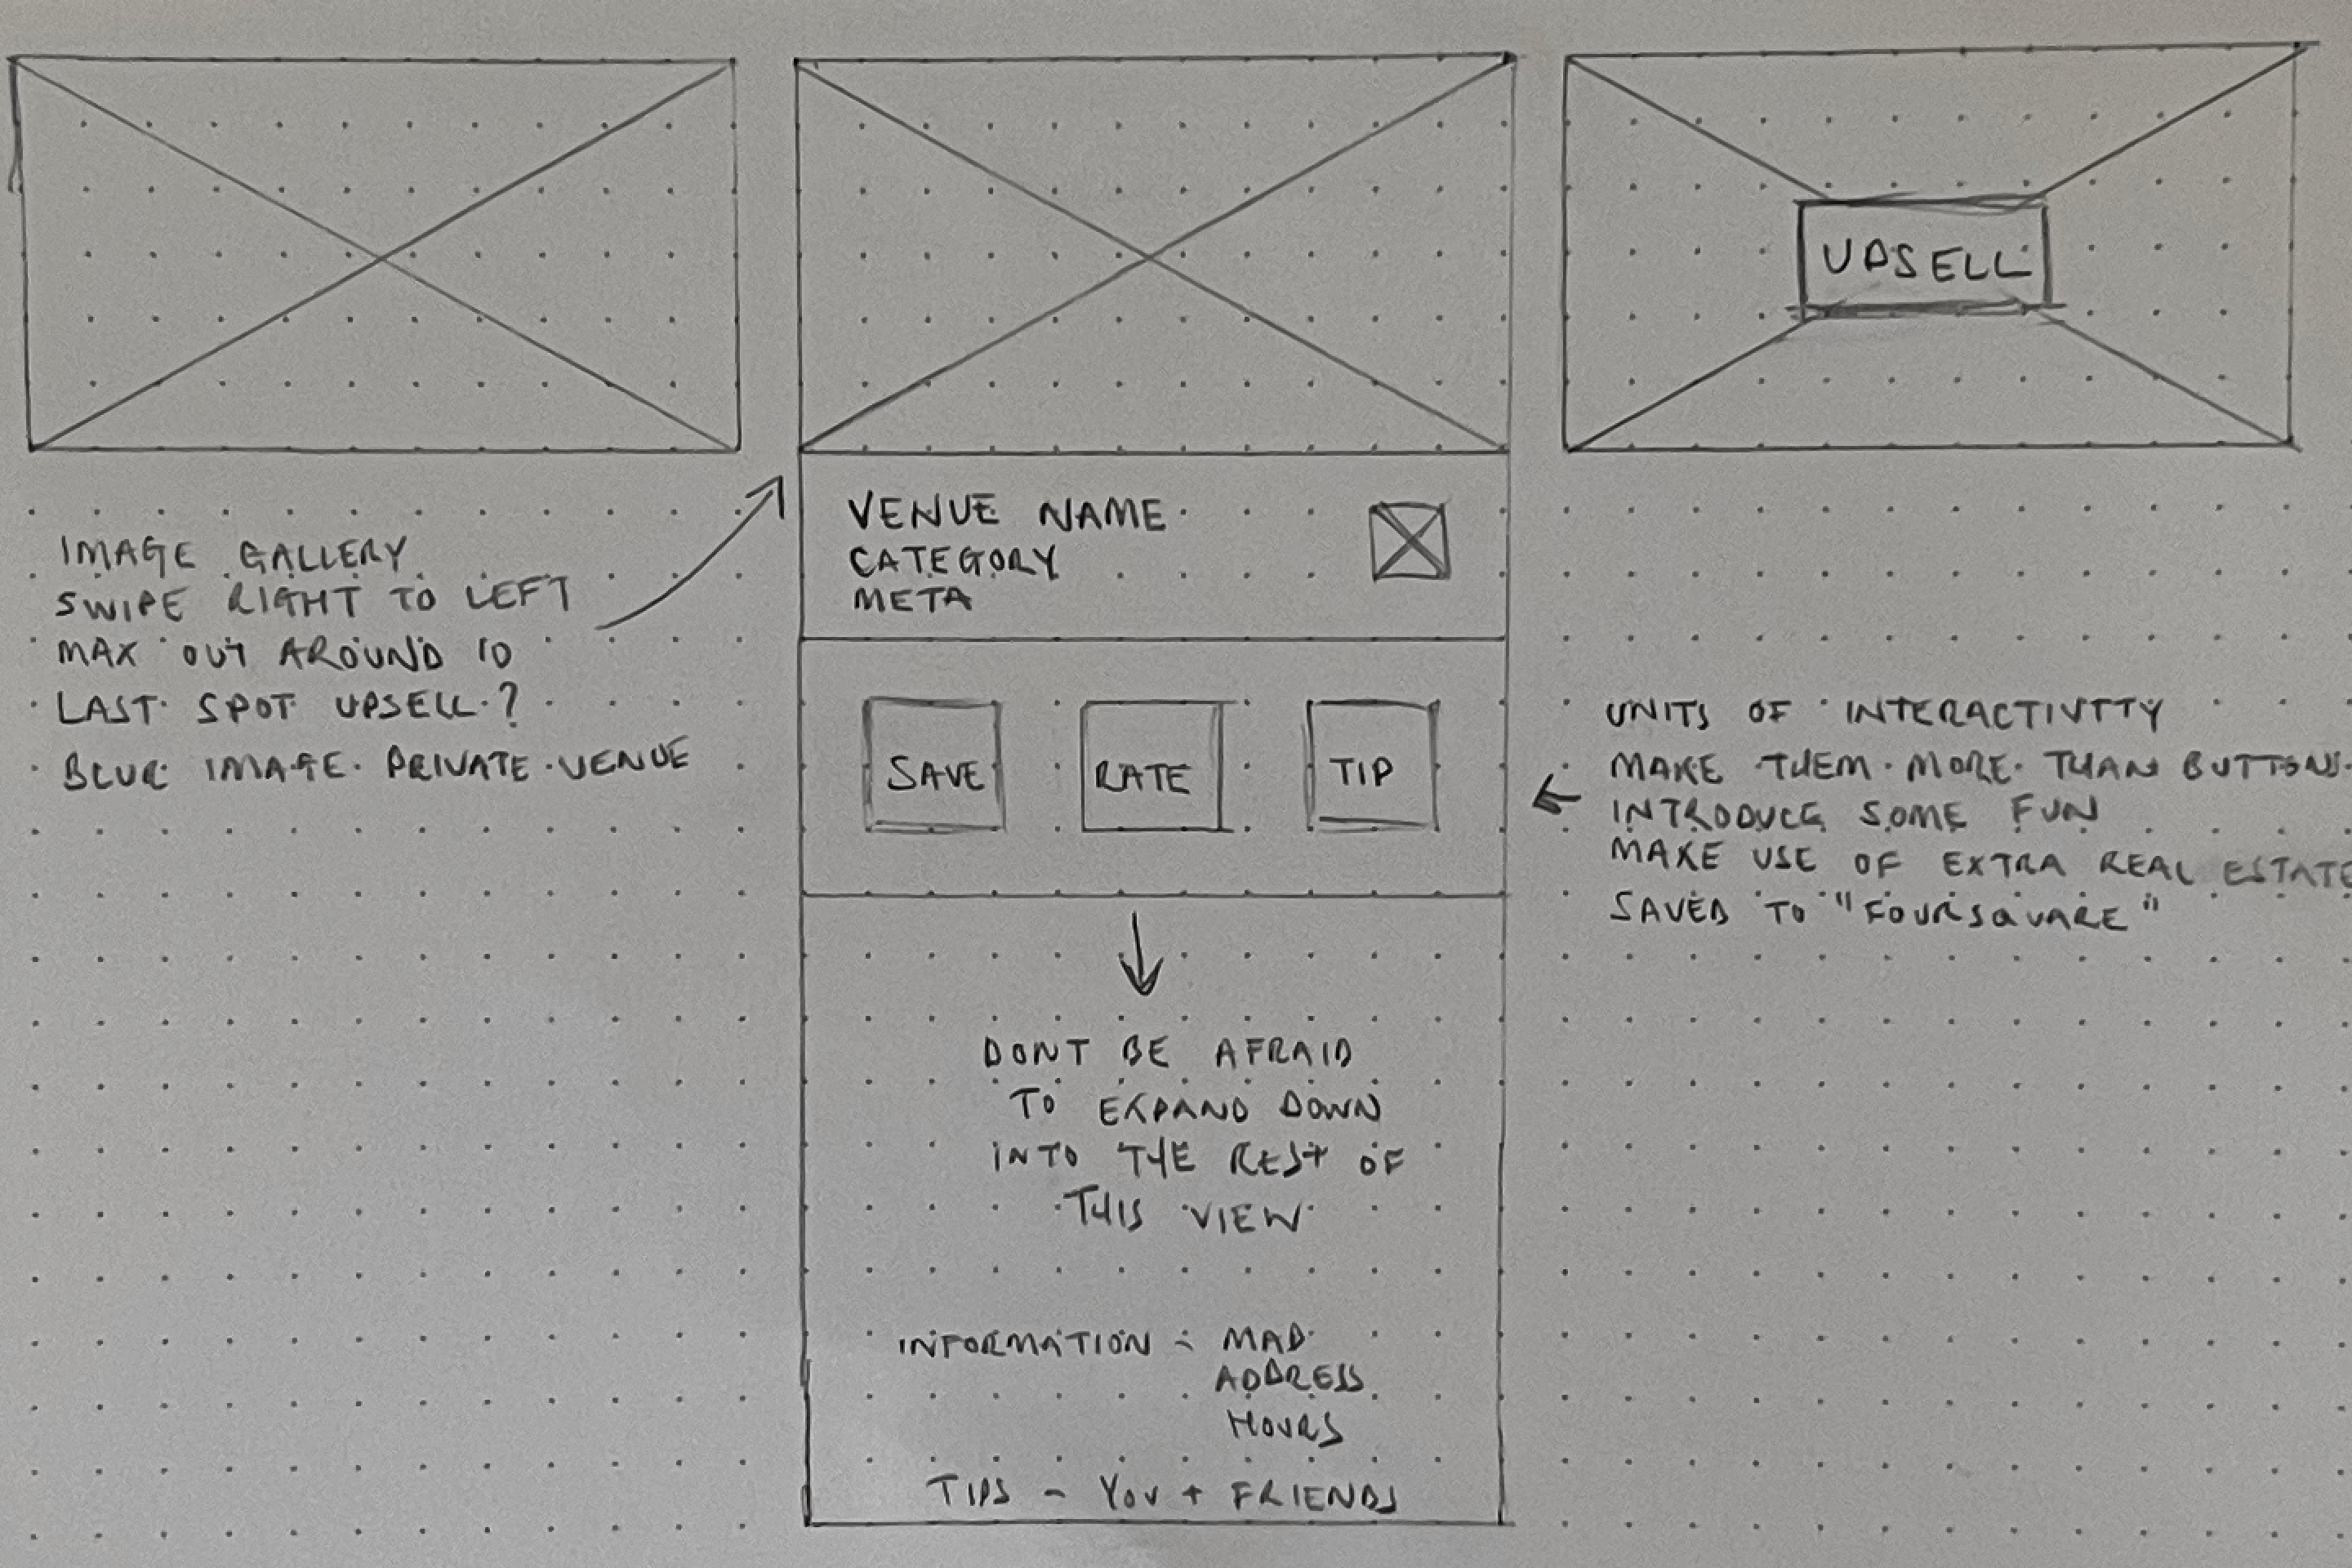 UPSELL
VENUE NAME
CATEGORY
META
IMAGE GALLERY
SWIPE RIGHT TO LEFT
MAX OUT AROUND 10
LAST SPOT UPSELL?
BLUR IMAGE PRIVATE VENUE
SAVE
RATE
TIP
UNITS OF INTERACTIVITY
MAKE THEM MORE THAN BUTTONS
INTRODUCE SOME FUN
MAKE USE OF EXTRA REAL ESTATE
SAVED TO "FOURSQUARE"
DONT BE AFRAID
TO EXPAND DOWN
INTO THE REST OF
THIS VIEW
INFORMATION - MAP
ADDRESS
HOURS
TIPS - YOU + FRIENDS